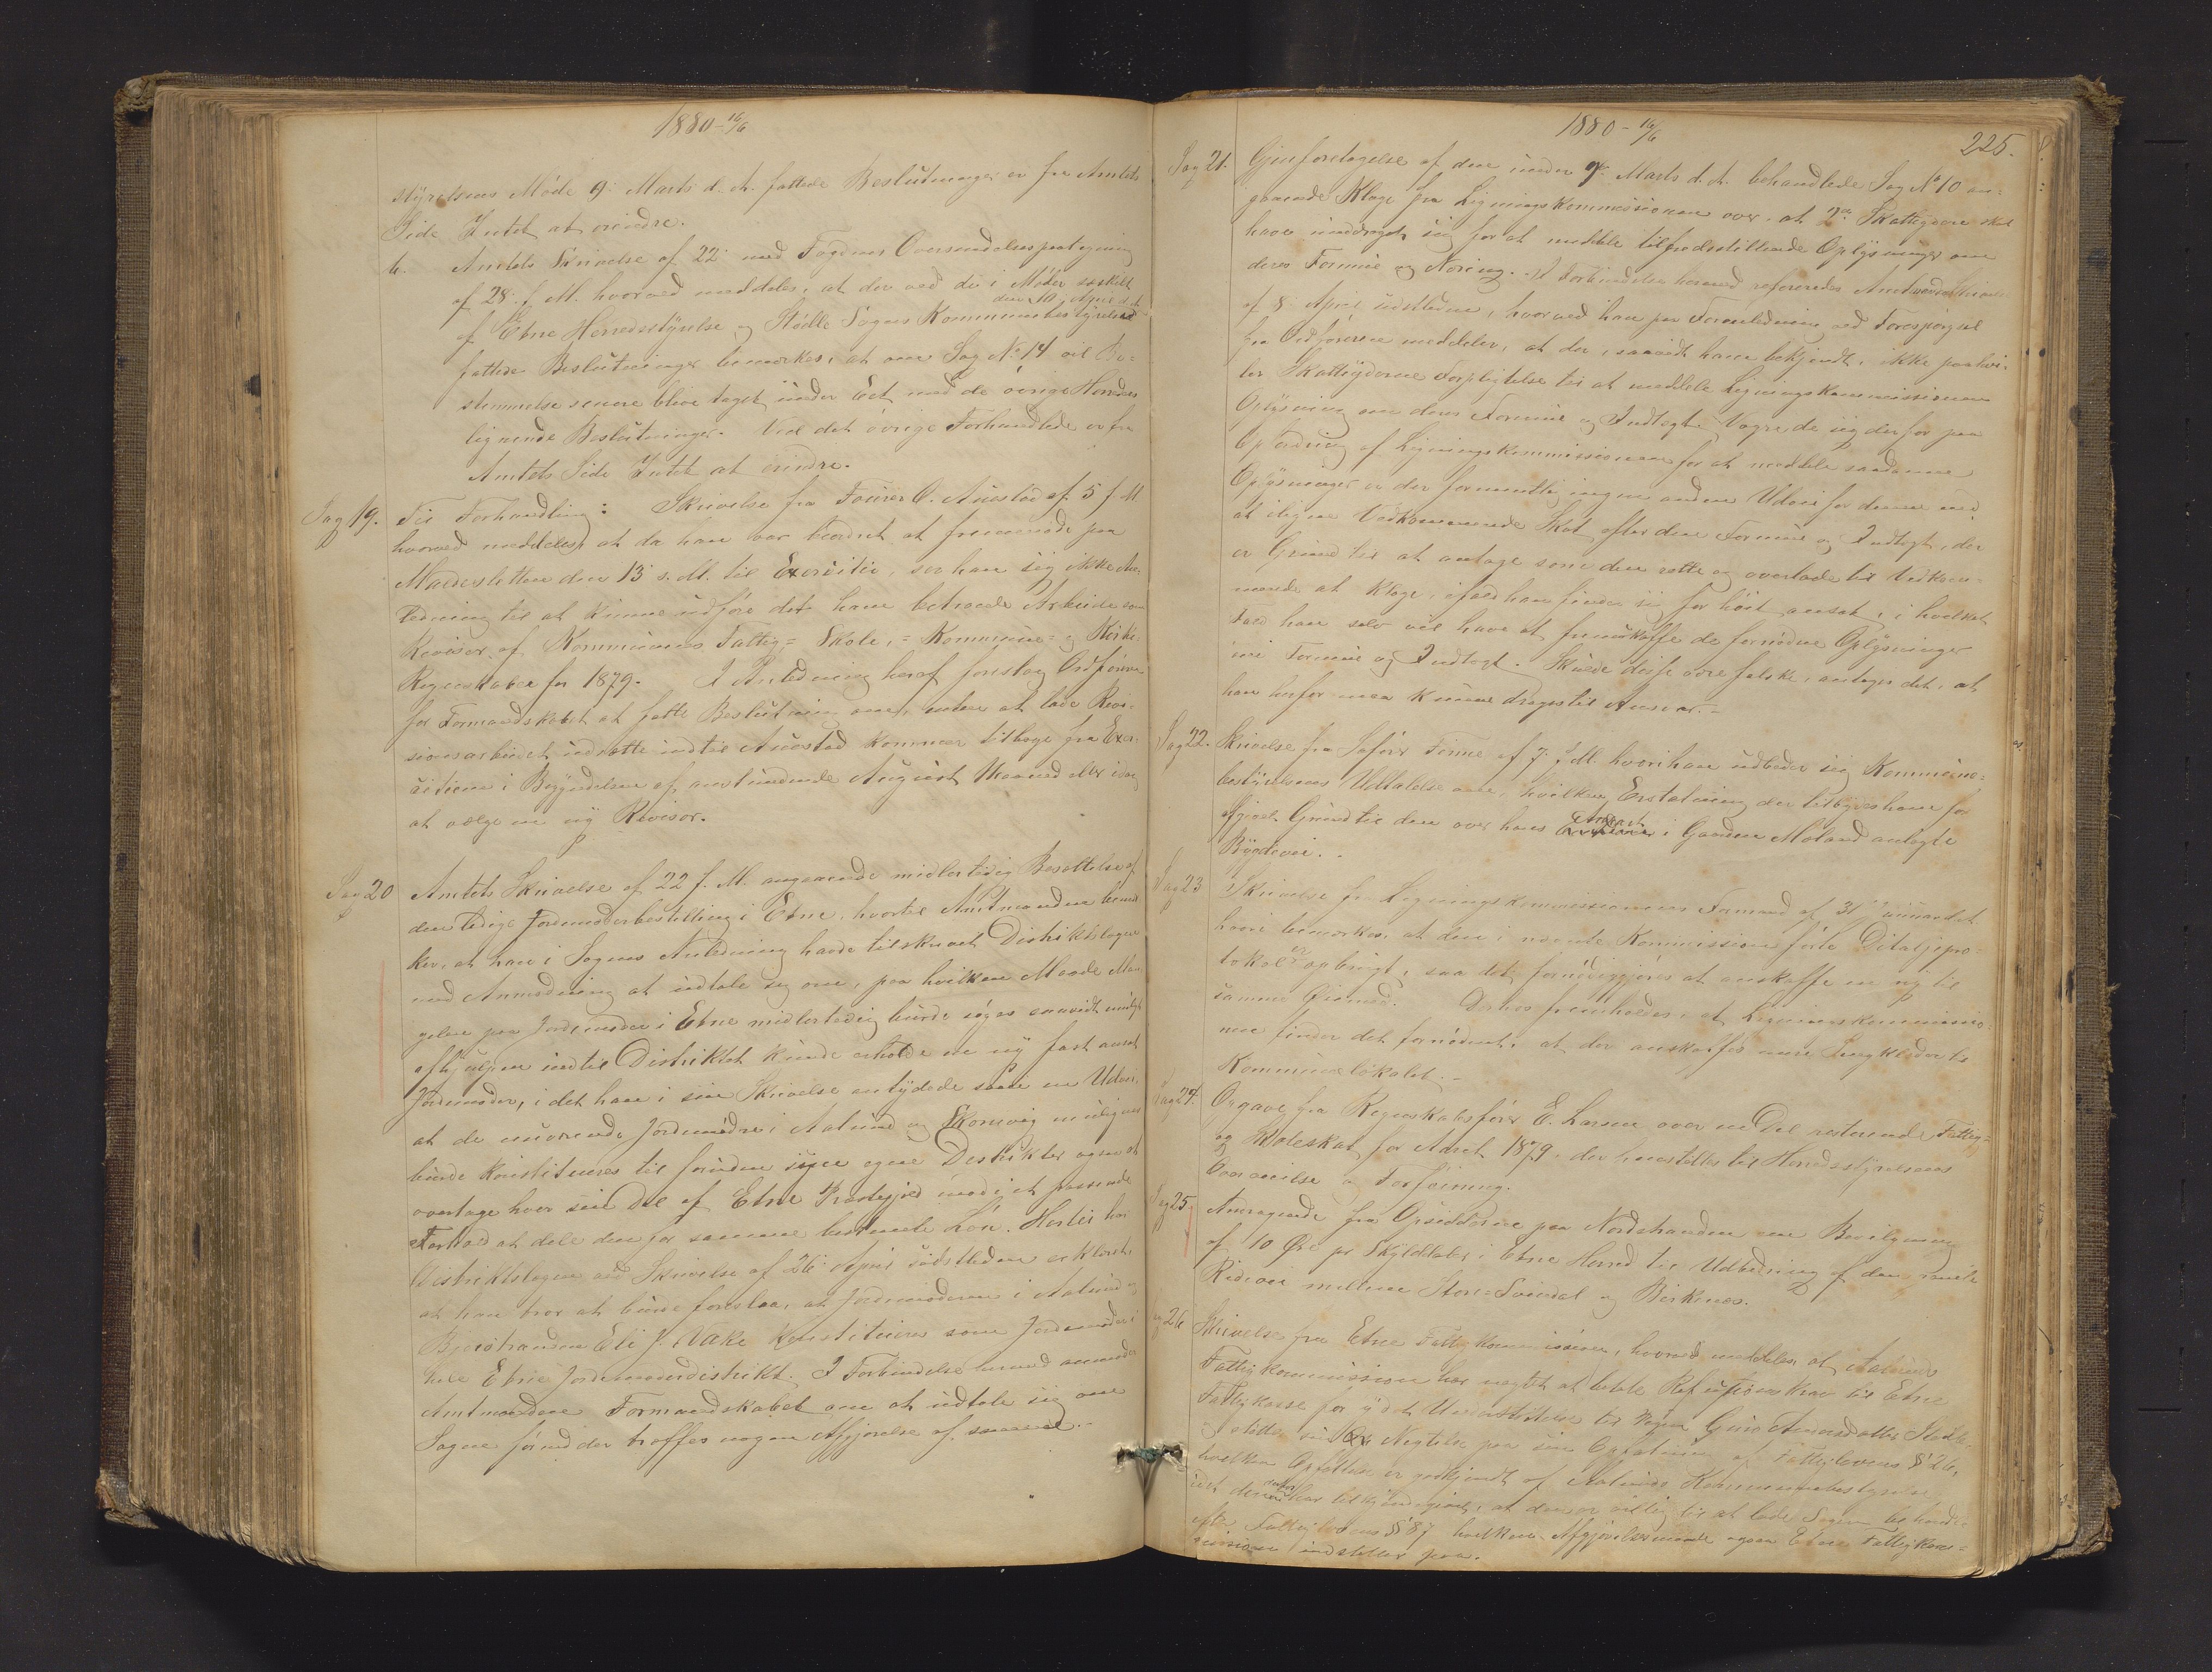 1880 - 16/6
styrelsens Møde 9. Marts d. A. fattede Beslutninger er fra Amtets
Side Intet at erindre.
b. Amtets Skrivelse af 22. med Fogdens Oversendelsespaategning
af 28. f. M. hvorved meddeles, at der ved de i Møder særskilt
den 30 April d. A.
af Etne Herredsstyrelse og Stødle Sogns Kommunebestyrelse
fattede Beslutninger bemærkes, at om Sag No 14 vil Be-
stemmelse senere blive taget under Eet med de øvrige Herreders
lignende Beslutninger. Ved det øvrige Forhandlede er fra
Amtets Side Intet at erindre.
Sag 19. Til Forhandling: Skrivelse fra Fourer O. Austad af 5 f. M
hvorved meddeles, at da han var beordret at fremmøde paa
Maldesletten den 13 s. M. til Exercitie, ser han sig ikke An-
ledning til at kunne udføre det ham betroede Arbeide som
Revisor af Kommunens Fattig-, Skole-, Kommune- og Kirke-
Regnskaber for 1879. I Anledning heraf foreslog Ordføreren
for Formandskabet at fatte Beslutning om, enten at lade Revi-
sionsarbeidet udsætte indtil Austad kommer tilbage fra Exer-
citien i Begyndelsen af anstundende August Maaned eller idag
at vælge en ny Revisor.
Sag 20 Amtets Skrivelse af 22 f. M. angaaende midlertidig Besættelse af
den ledige Jordmoderbestilling i Etne, hvortil Amtmanden bemær-
ker, at han i Sagens Anledning havde tilskrevet Distriktslægen
med Anmodning at udtale sig om, paa hvilken Maade Man-
gelen paa Jordmoder i Etne midlertidig burde søges saavidt muligt
afhjulpen indtil Distriktet kunde erholde en ny fast ansat
Jordmoder, i det han i sin Skrivelse antydede som en Udvei,
at de nuværende Jordmødre i Aalund og Skonevig muligens
burde konstitueres til foruden sine egne Distrikter ogsaa at
overtage hver sin Del af Etne Præstegjeld imod i et passende
Forhold at dele den for samme bestemte Løn. Hertil har
Distriktslægen ved Skrivelse af 26. April sidstleden erklæret
at han tror at burde foreslaa, at Jordmoderen i Aalund og
Bjoastranden Eli J. Vake konstitueres som Jordmoder i
hele Etne Jordmoderdistrikt. I Forbindelse hermed anmoder
Amtmanden Formandskabet om at udtale sig om
Sagen førend der træffes nogen Afgjørelse af samme.-
1880 - 16/6
225.
Sag 21. Gjenforetagelse af den under 9. Marts d. A. behandlede Sag No 10 an-
gaaende Klage fra Ligningskommissionen over, at Skatteydere skal
have unddraget sig for at meddele tilfredsstillende Oplysninger om
deres Formue og Næring. I Forbindelse hermed refereredes Amtmandens Skrivelse
af 8. April sidstleden, hvorved han paa Foranledning ved Forespørgsel
fra Ordføreren meddeler, at der, saavidt ham bekjendt, ikke paahvi-
ler Skatteyderne Forpligtelse til at meddele Ligningskommissionen
Oplysning om deres Formue og Indtægt. Vægre de sig derfor paa
Opfordring af Ligningskommissionen for at meddele saadanne
Oplysninger er der formentlig ingen anden Udvei for denne end
at iligne Vedkommende Skat efter den Formue og Indtægt, der
er Grund til at antage som den rette og overlade til Vedkom-
mende at klage, ifald han finder sig for høit ansat, i hvilket
Fald han selv vil have at fremskaffe de fornødne Oplysninger
om Formue og Indtægt. Skulde disse være falske, antages det, at
han herfor maa kunne drages til Ansvar.-
Sag 22. Skrivelse fra Sefør Finne af 7. f. M. hvori han udbeder sig Kommune-
bestyrelsens Udtalelse om, hvilken Erstatning der tilbydes ham for
afgivet Grund til den over hans Anpart i Gaarden Moland anlagte
Bygdevei.-
Sag 23 Skrivelse fra Ligningskommissionens Formand af 31 Januar d. A.
hvori bemærkes, at den i nævnte Kommission førte Detaljepro-
tokol er opbrugt, saa det fornødiggjøres at anskaffe en ny til
samme Øiemed. Derhos fremholdes, at Ligningskommissio-
nen finder det fornødent, at der anskaffes nogle Sengklæder til
Kommunelokalet.-
Sag 24. Opgave fra Regnskabsfører E. Larsen over en Del resterende Fattig-
og Skoleskat for Aaret 1879, der henstilles til Herredsstyrelsens
Overveielse og Forføining.
Sag 25. Andragende fra Opsidderne paa Nordstranden om Bevilgning
af 10 Øre pr Skylddaler i Etne Herred til Udbedring af den gamle
Ridevei mellem Store-Svendal og Birkenæs.
Sag 26 Skrivelse fra Etne Fattigkommission, hvorved meddeles, at Aalunds
Fattigkommission har nægtet at betale Refusionskrav til Etne
Fattigkasse for ydet Understøttelse til Pigen Guro Amundsdatter
og støder sin Nægtelse paa sin Opfatning af Fattiglovens § 26,
hvilken Opfatning er godkjendt af Aalunds Kommunebestyrelse,
idet denne har tilkjendegivet, at den er villig til at lade Sagen behandle
efter Fattiglovens § 87 hvilken Afgjørelsesmaade ogsaa Etne Fattigkom-
mission indstiller paa.